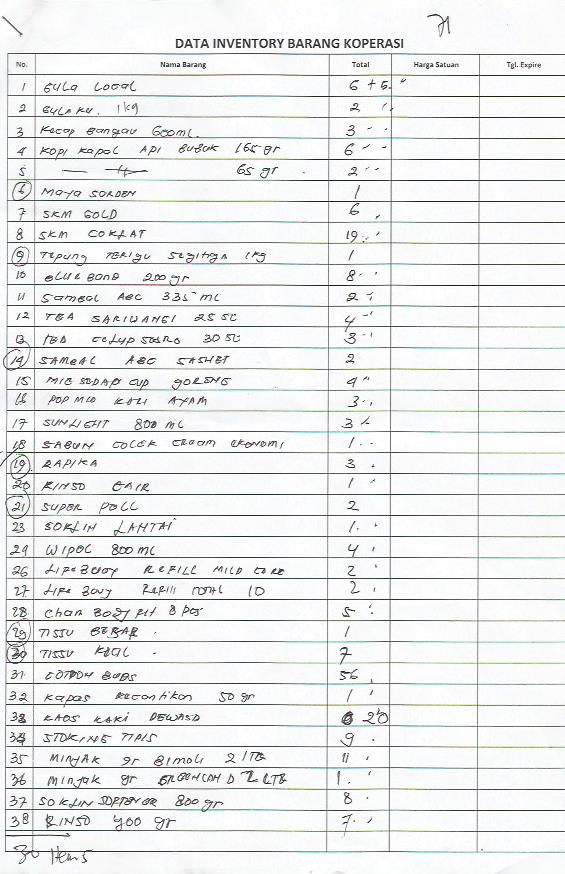 DATA INVENTORY BARANG KOPERASI
No. Nama Barang Total Harga Satuan Tgl. Expire
1 Gula Local 6 + 5
2 GULAKU. 1kg 2
3 Kecap Bangau 600ml. 3
4 KOPI KAPAL API BUBUK 165 gr 6
5 65 gr 2
6 Maya SORDEN 1
7 SKM GOLD 6
8 SKM COKLAT 19
9 Tepung TERIGU Segitiga 1kg 1
10 BLUE BAND 200 gr 8
11 Sambal ABC 335 ml 2
12 TEA SARIWANGI 25 SC 4
13 TEA Celup SOSRO 30 SC 3
14 SAMBAL ABC SASHET 2
15 MIE SEDAP cup GORENG 4
16 POP MIE KARI AYAM 3
17 SUNLIGHT 800 ML 3
18 SABUN COLEK CREAM EKONOMI 1
19 RAPIKA 3
20 RINSO CAIR 1
21 SUPER PELL 2
23 SOKLIN LANTAI 1
24 WIPOL 800 ML 4
26 LIFEBUOY REFILL MILD CARE 2
27 Life Buoy Refill TOTAL 10 2
28 8 pcs 5
29 TISSU BESAR 1
30 TISSU KECIL 7
31 COTTON BUDS 56
32 Kapas Kecantikan 50 gr 1
33 KAOS KAKI DEWASA 20
34 STOKING TIPIS 9
35 MINJAK gr BIMOLI 2 LTR 11
36 MINJAK gr 2 LTR 1
37 SOKLIN SOFTENER 800 gr 8
38 RINSO 900 gr 7
Items